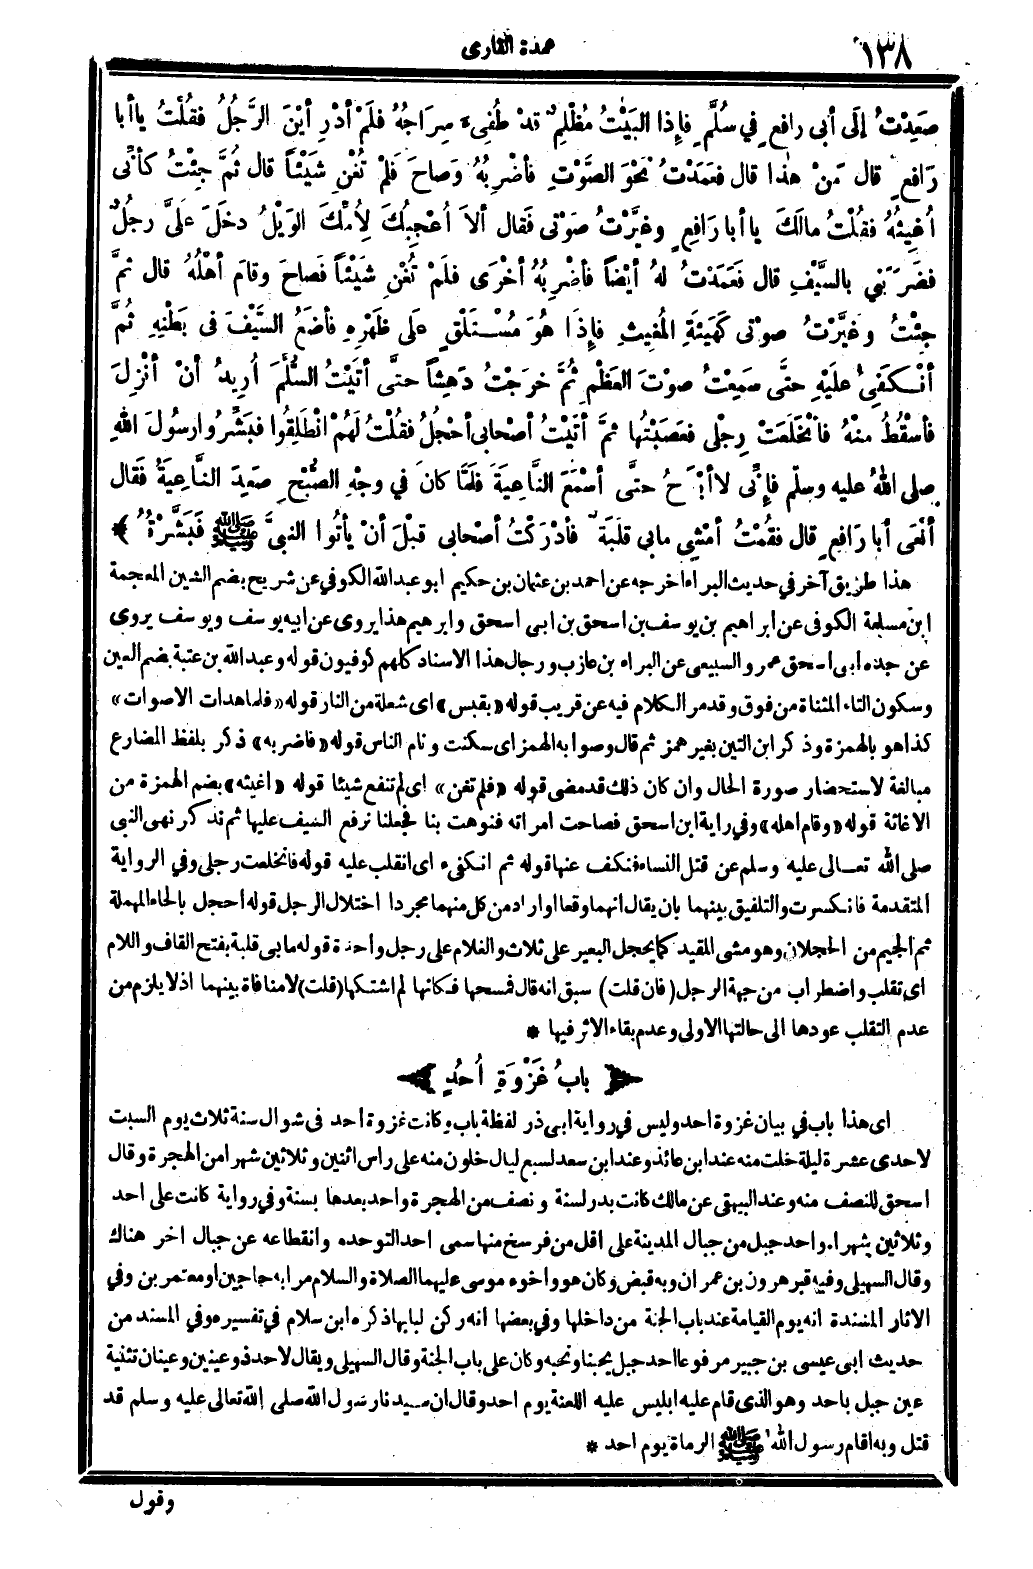 ١٣٨
عمدة القارى
صَعِدْتُ إلَى أبى رافِعٍ فِي سُلَّمٍ فإِذا البَيْتُ مُظْلِمٌ قدْ طُفِىءَ سِرَاجُهُ فَلَمْ أدْرِ أيْنَ الرَّجُلُ فقُلْتُ ياأبا
رَافِعٍ قال مَنْ هٰذا قال فعَمَدْتُ نَحْوَ الصَّوْتِ فأضْرِبُهُ وَصاحَ فَلَمْ تُغْنِ شَيْئاً قال ثُمَّ جِئْتُ كأنِّى
أُغِيثُهُ فقُلْتُ مالَكَ ياأبا رَافِعٍ وغيَّرْتُ صَوْتى فَقال ألاَ أُعْجِبُكَ لِأُمِّكَ الوَيْلُ دخَلَ عَلَىَّ رجُلٌ
فضَرَبَنِي بالسَّيْفِ قال فَعَمَدْتُ لهُ أيْضاً فأضْرِبُهُ أخْرَى فلَمْ تُغْنِ شَيْئاً فَصاحَ وقامَ أهْلُهُ قال ثمَّ
جِئْتُ وغيَّرْتُ صوْتى كَهَيْئَةِ المُغِيثِ فإِذَا هُوَ مُسْتَلْقٍ عَلى ظَهْرِهِ فأضَعُ السَّيْفَ فى بَطْنِهِ ثُمَّ
أنْكَفِىُ علَيْهِ حتَّى سَمِعْتُ صوْتَ العَظْمِ ثُمَّ خرَجْتُ دَهِشاً حتى أتَيْتُ السُّلَّمَ أُرِيدُ أنْ أنْزِلَ
فأسْقُطُ منْهُ فانْخَلَعَتْ رِجْلِى فعَصَبْتُها ثمَّ أتَيْتُ أصْحابى أحْجُلُ فقُلْتُ لَهُمْ انْطَلِقُوا فبَشِّرُوا رسُولَ اللهِ
صلى اللهُ عليه وسلّم فإِنِّى لاأبْرَحُ حتَّى أسْمَعَ النَّاعِيَةَ فلَمَّا كانَ في وجْهِ الصُّبْحِ صَعِدَ النَّاعِيَةُ فَقال
أنْعَى أبا رَافِعٍ قال فقُمْتُ أمْشِي مابي قلَبَةٌ فأدْرَكْتُ أصْحابى قبْلَ أنْ يأتُوا النبىَّ ﷺ فَبَشَّرْتُهُ ﴾ *
هذا طريق آخر في حديث البراء اخرجه عن احمد بن عثمان بن حكيم ابو عبد الله الكوفي عن شريح بضم الشين المعجمة
ابن مسلمة الكوفى عن ابراهيم بن يوسف بن اسحق بن ابى اسحق وابرهيم هذا يروى عن ابيه يوسف ويوسف يروى
عن جده ابى اسحق عمرو السبيعى عن البراء بن عازب ورجال هذا الاسناد كلهم كوفيون قوله وعبد الله بن عتبة بضم العين
وسكون التاء المثناة من فوق وقد مر الكلام فيه عن قريب قوله «بقبس» اى شعلة من النار قوله «فلما هدات الاصوات»
كذا هو بالهمزة وذكر ابن التين بغير همز ثم قال وصوابه الهمز اى سكنت ونام الناس قوله «فاضربه» ذكر بلفظ المضارع
مبالغة لاستحضار صورة الحال وان كان ذلك قد مضى قوله «فلم تغن» اى لم تنفع شيئا قوله «اغيثه» بضم الهمزة من
الاغاثة قوله «وقام اهله» وفي راية ابن اسحق فصاحت امراته فنوهت بنا فجعلنا نرفع السيف عليها ثم نذكر نهى النبى
صلى الله تعالى عليه وسلم عن قتل النساء فنكف عنها قوله ثم انكفىء اى انقلب عليه قوله فانخلعت رجلى وفي الرواية
المتقدمة فانكسرت والتلفيق بينهما بان يقال انهما وقعا او اراد من كل منهما مجردا اختلال الرجل قوله احجل بالحاء المهملة
ثم الجيم من الحجلان وهو مشى المقيد كما يحجل البعير على ثلاث والغلام على رجل واحدة قوله مابى قلبة بفتح القاف واللام
اى تقلب واضطراب من جهة الرجل (فان قلت) سبق انه قال فمسحها فكانها لم اشتكها (قلت) لا منافاة بينهما اذ لا يلزم من
عدم التقلب عودها الى حالتها الاولى وعدم بقاء الاثر فيها *
﴿ بابُ غَزْوَةِ أُحُدٍ ﴾
اى هذا باب في بيان غزوة احد وليس في رواية ابى ذر لفظة باب وكانت غزوة احد فى شوال سنة ثلاث يوم السبت
لاحدى عشرة ليلة خلت منه عند ابن عائذ وعند ابن سعد لسبع ليال خلون منه على راس اثنين وثلاثين شهرا من الهجرة وقال
اسحق للنصف منه وعند البيهقى عن مالك كانت بدر لسنة ونصف من الهجرة واحد بعدها بسنة وفي رواية كانت على احد
وثلاثين شهرا. واحد جبل من جبال المدينة على اقل من فرسخ منها سمى احد التوحده وانقطاعه عن جبال اخر هناك
وقال السهيلى وفيه قبر هرون بن عمران وبه قبض وكان هو واخوه موسى عليهما الصلاة والسلام مرا به حاجين او معتمرين وفي
الاثار المسندة انه يوم القيامة عند باب الجنة من داخلها وفي بعضها انه ركن لبابها ذكره ابن سلام في تفسيره وفي المسند من
حديث ابى عيسى بن جبير مرفوعا احد جبل يحبنا ونحبه وكان على باب الجنة وقال السهيلى ويقال لاحد ذو عينين وعينان تثنية
عين جبل باحد وهو الذى قام عليه ابليس عليه اللعنة يوم احد وقال ان سيدنا رسول الله صلى الله تعالى عليه وسلم قد
قتل وبه اقام رسول الله ﷺ الرماة يوم احد *
وقول